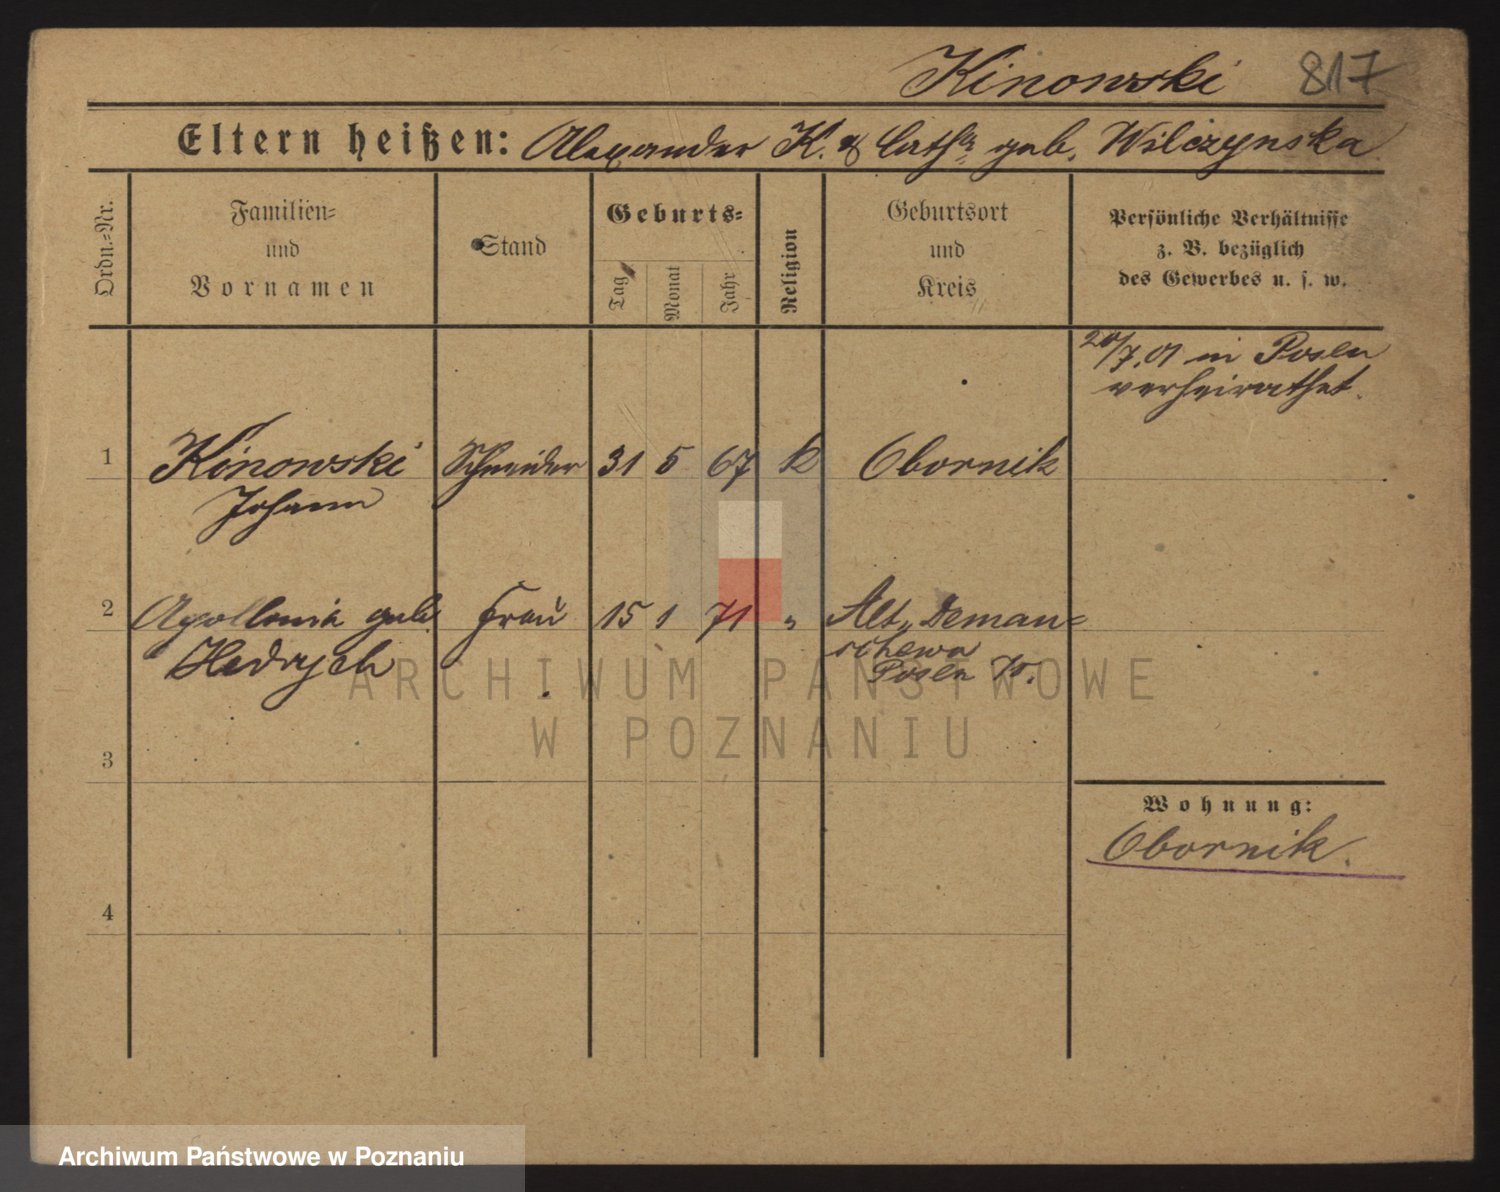 Kinowski 817
Eltern heißen: Alexander K. & Cath^a geb. Wilczynska
Ordn.=Nr.
Familien=
und
Vornamen
Stand
Geburts=
Tag
Monat
Jahr
Religion
Geburtsort
und
Kreis
Persönliche Verhältnisse
z. B. bezüglich
des Gewerbes u. s. w.
20/7.01 in Posen
verheirathet.
1 Kinowski Schneider 31 5 67 k Obornik
Johann
2 Apollonia geb Frau 15 1 71 " Alt Deman=
Hedrych
schewa
Posen
3
Wohnung:
Obornik.
4
ARCHIWUM PAŃSTWOWE
W POZNANIU
Archiwum Państwowe w Poznaniu